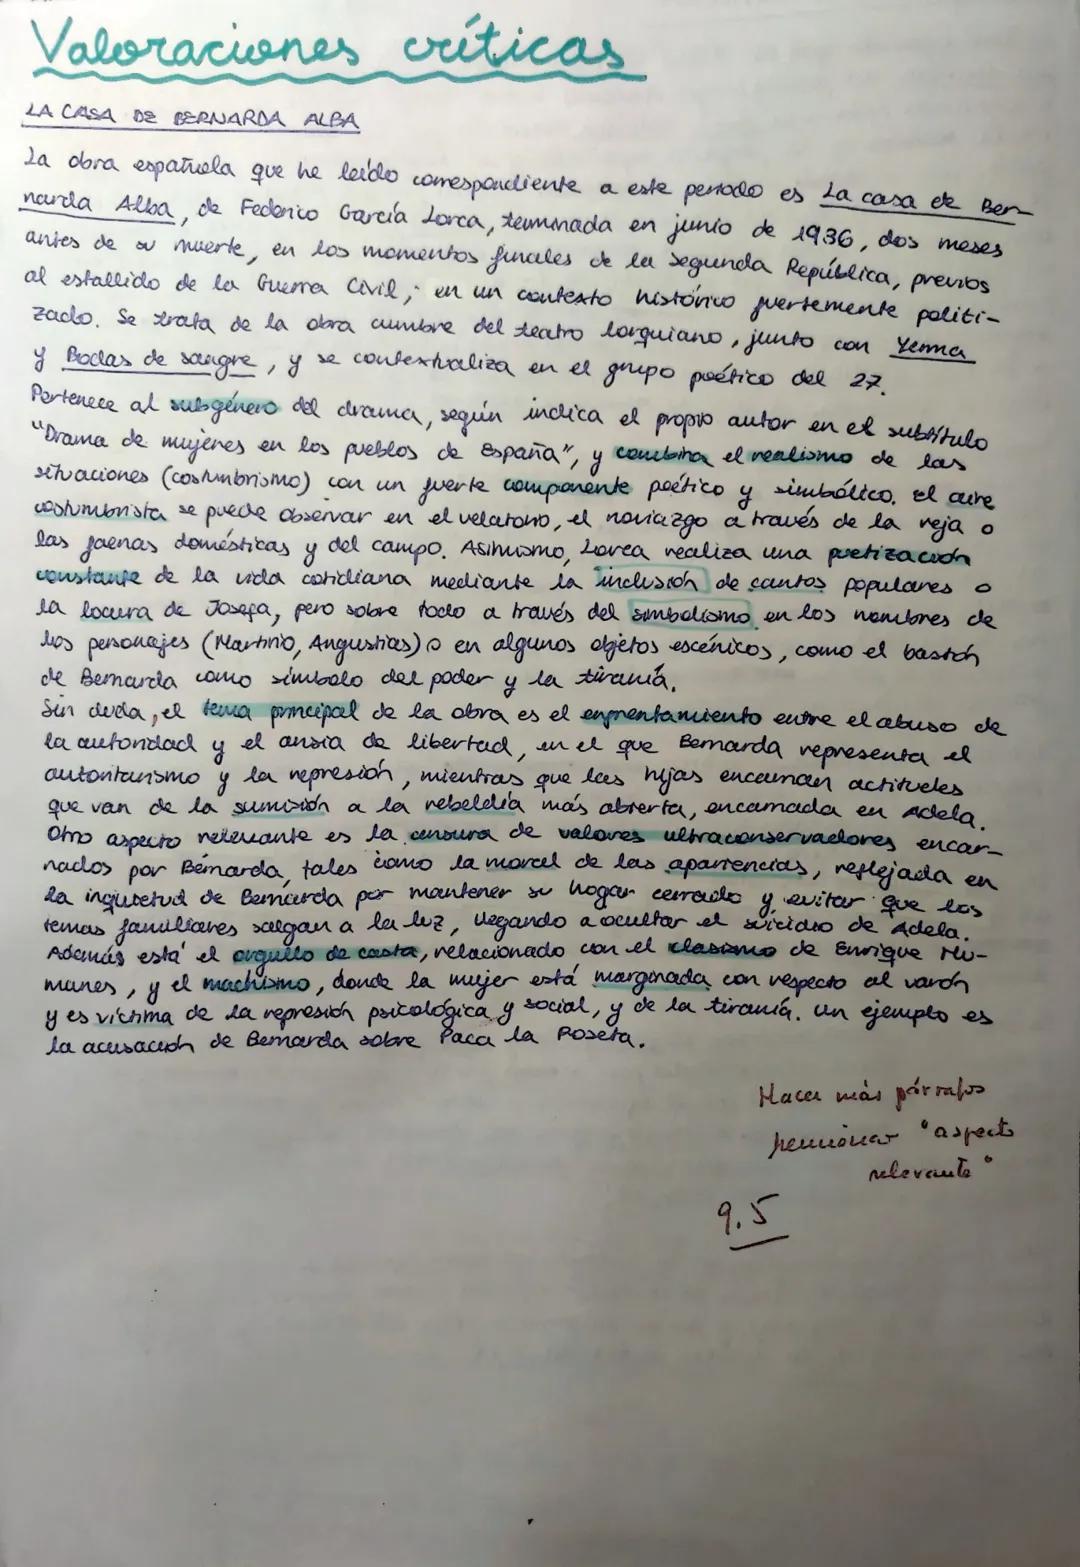 Valoraciones críticas
LA CASA DE BERNARDA ALBA
La obra española que he leído correspondiente a este periodo es La casa de Ber-
narda Alba, de Federico García Lorca, terminada en junio de 1936, dos meses
antes de su muerte, en los momentos finales de la Segunda República, previos
al estallido de la Guerra Civil, en un contexto histórico fuertemente politi-
zado. Se trata de la obra cumbre del teatro lorquiano, junto con Yerma
y Bodas de sangre, y se contextualiza en el grupo poético del 27.
Pertenece al subgénero del drama, según indica el propio autor en el subtítulo
"Drama de mujeres en los pueblos de España", y combina el realismo de las
situaciones (costumbrismo) con un fuerte componente poético y simbólico. El aire
costumbrista se puede observar en el velatorio, el noviazgo a través de la reja o
las faenas domésticas y del campo. Asimismo, Lorca realiza una poetización
constante de la vida cotidiana mediante la inclusión de cantos populares o
la locura de Josefa, pero sobre todo a través del simbolismo en los nombres de
los personajes (Martirio, Angustias) o en algunos objetos escénicos, como el bastón
de Bernarda como símbolo del poder y la tiranía.
Sin duda, el tema principal de la obra es el enfrentamiento entre el abuso de
la autoridad y el ansia de libertad, en el que Bernarda representa el
autoritarismo y la represión, mientras que las hijas encarnan actitudes
que van de la sumisión a la rebeldía más abierta, encarnada en Adela.
Otro aspecto relevante es la censura de valores ultraconservadores encar-
nados por Bernarda, tales como la moral de las apariencias, reflejada en
la inquietud de Bernarda por mantener su hogar cerrado y evitar que los
temas familiares salgan a la luz, llegando a ocultar el suicidio de Adela.
Además está el orgullo de casta, relacionado con el clasismo de Enrique Hu-
manes, y el machismo, donde la mujer está marginada con respecto al varón
y es víctima de la represión psicológica y social, y de la tiranía. Un ejemplo es
la acusación de Bernarda sobre Paca la Roseta.
Hacer más párrafos
"aspecto
relevante"
9.5